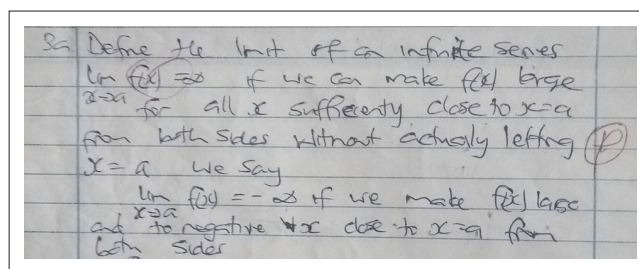 3a Define the limit of an infinite series
lim f(x) = ∞ if we can make f(x) large
x→a for all x sufficiently close to x=a
from both sides without actually letting
x = a we say
lim f(x) = -∞ if we make f(x) large
x→a
and to negative ∀x close to x=a from
both sides